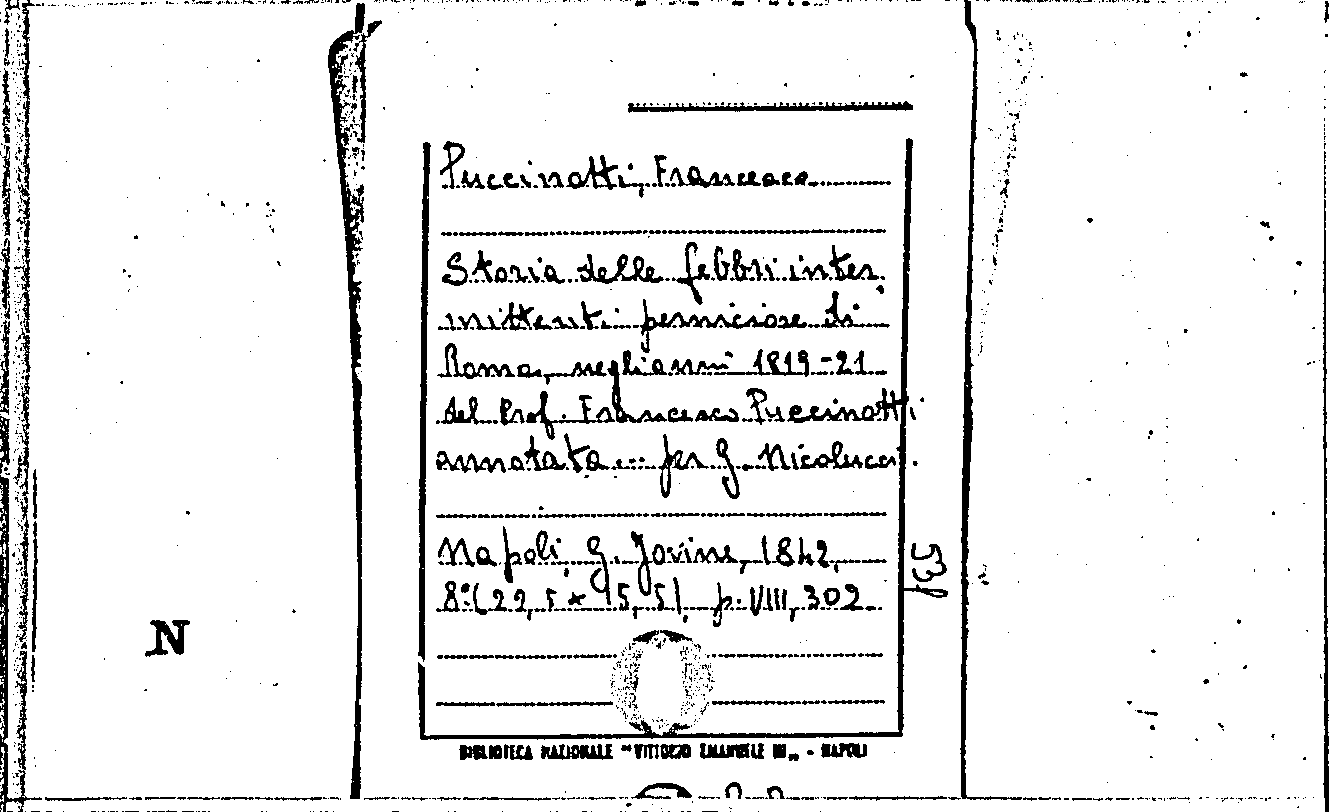 Puccinotti, Francesco
Storia delle febbri inter
mittenti perniciose di
Roma, negli anni 1819-21
del Prof. Francesco Puccinotti
annotata... per G. Nicolucci.
Napoli, G. Jovine, 1842,
8º (22,5 x 15,5), p. VIII, 302
N
BIBLIOTECA NAZIONALE "VITTORIO EMANUELE III„ - NAPOLI